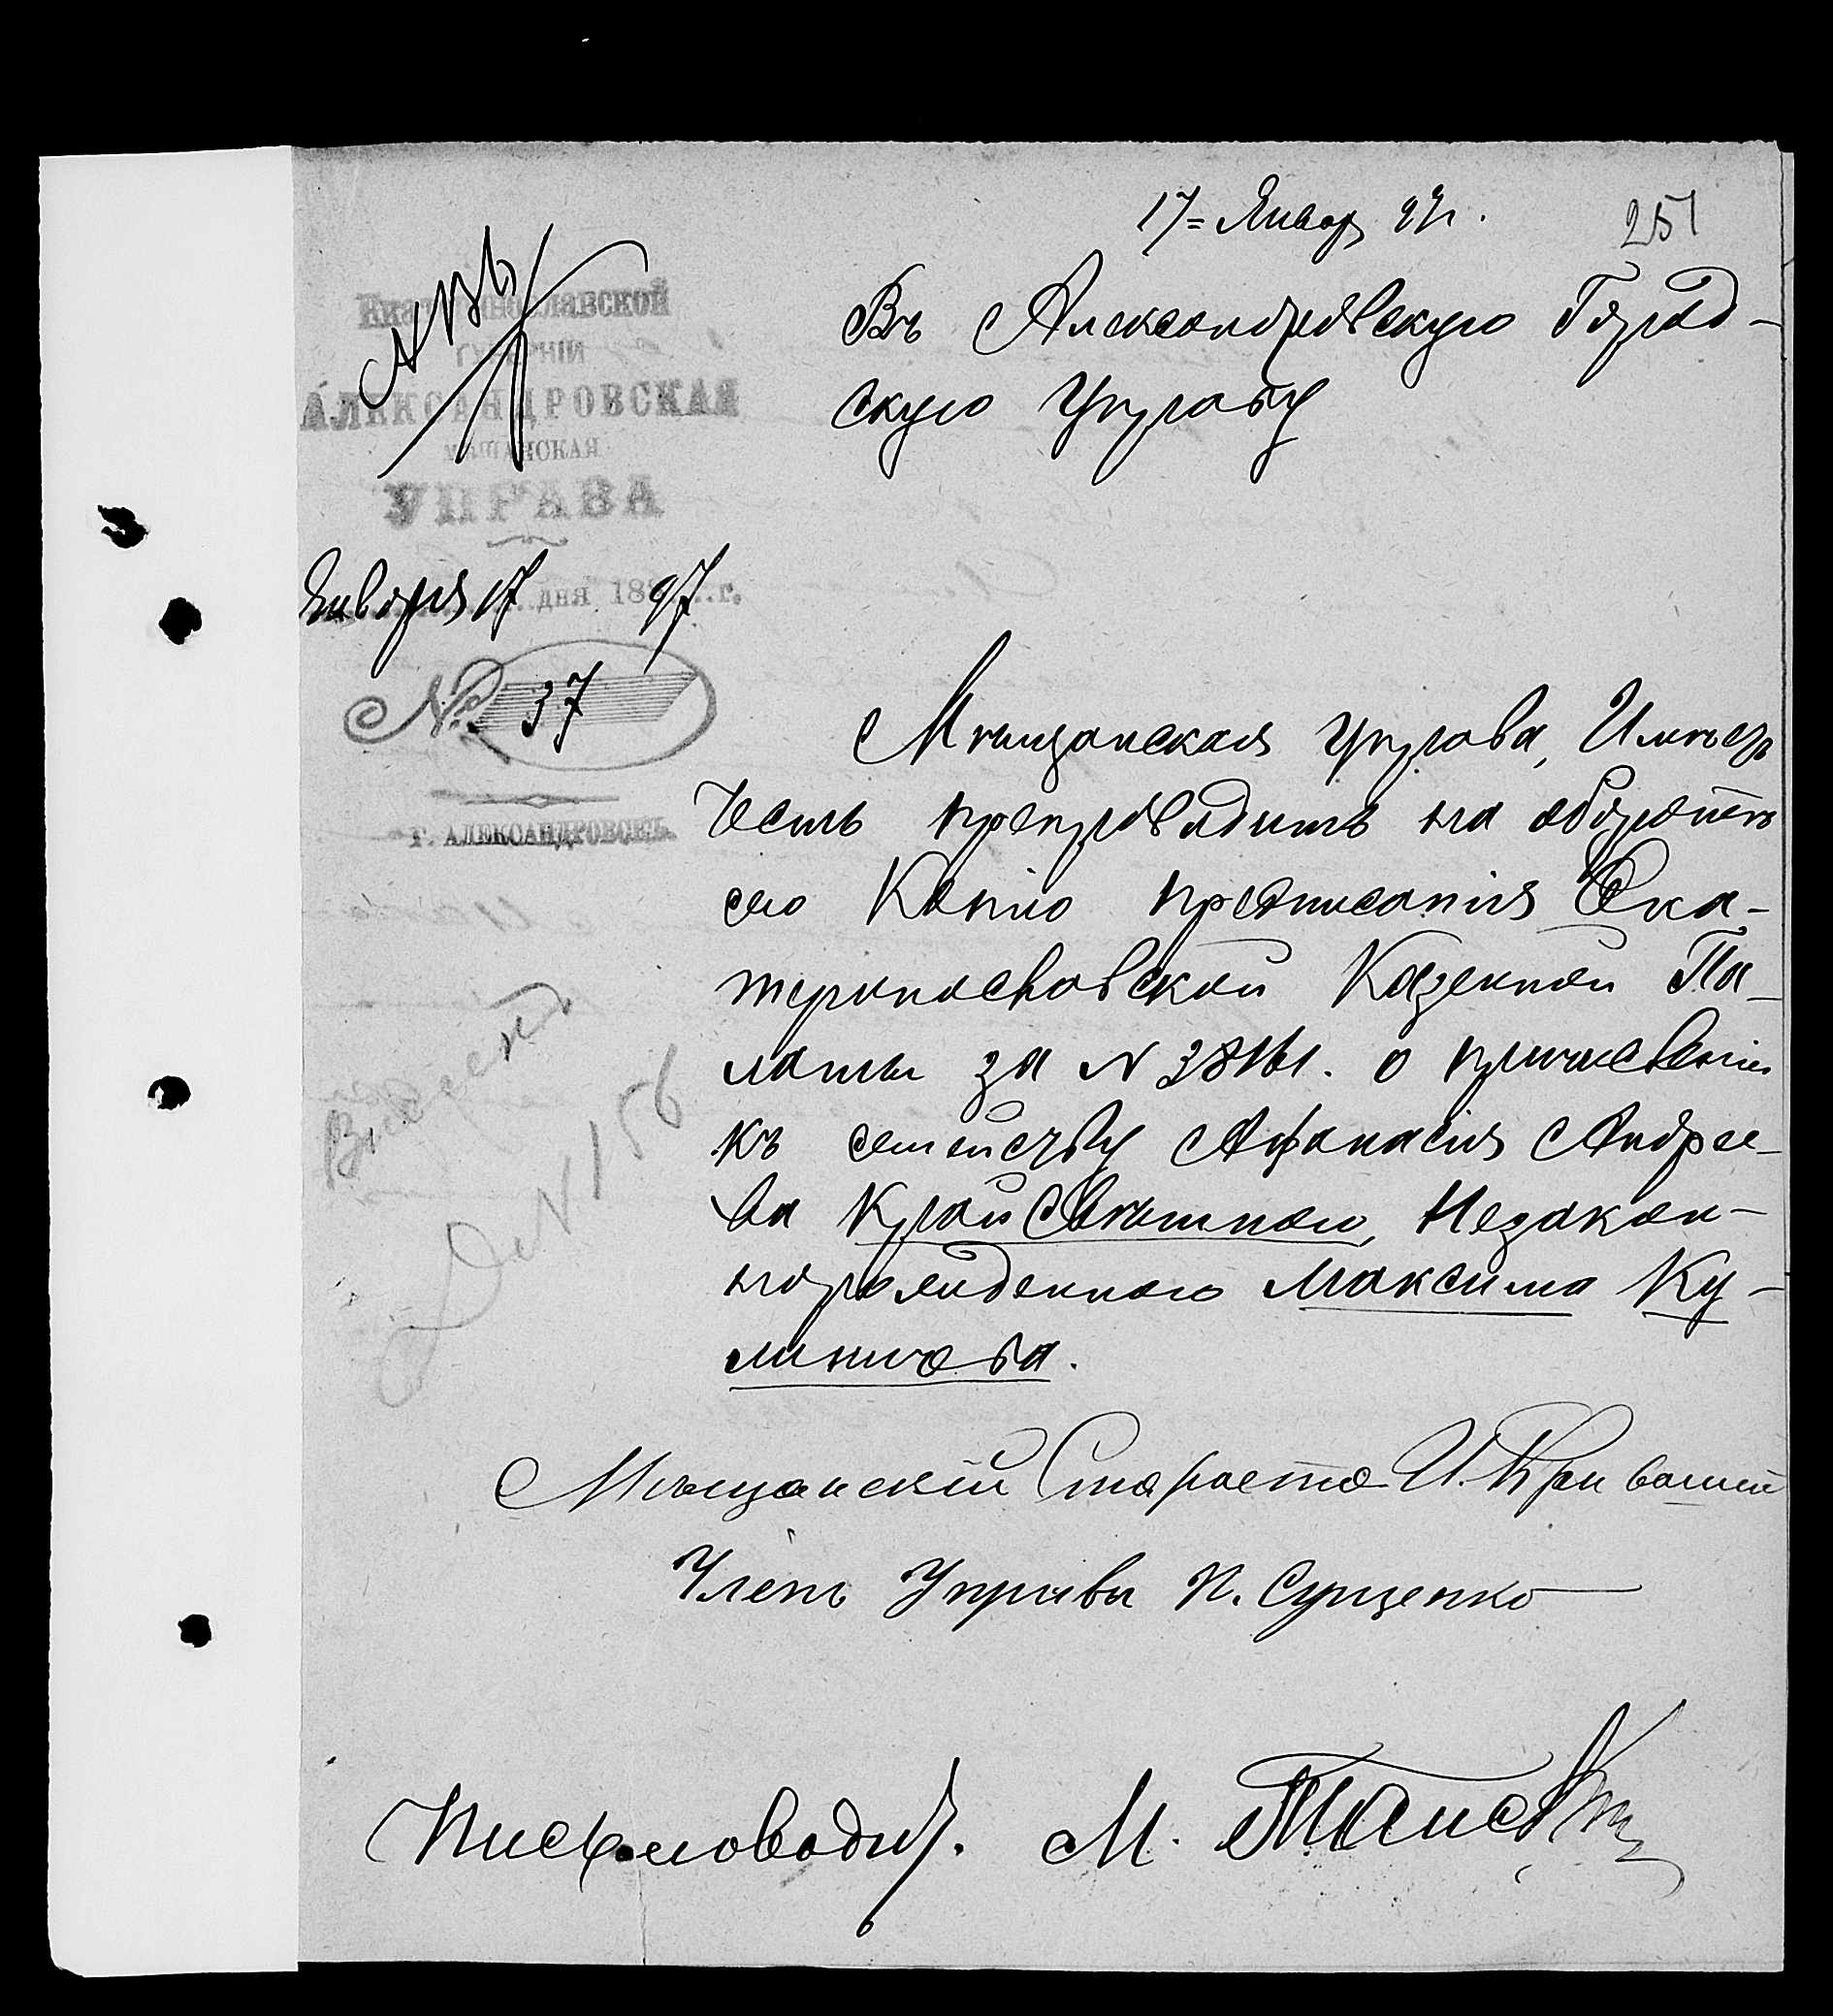 17 = Январ 97 г.
251
Екатеринославской
ГУБЕРНІИ
АЛЕКСАНДРОВСКАЯ
МѢЩАНСКАЯ
УПРАВА
Января 17 дня 1897 г.
№ 37
Г. АЛЕКСАНДРОВСКЪ
Въ Александровскую Город-
скую Управу
Мѣщанская управа, Имѣетъ
честь препроводить на оборотѣ
сего Копію предписанія Ека-
теринославской Казенной Па-
латы за N 38161. о причисленіи
къ семейству Афанасія Андрее-
ва Крайсвѣтнаго, Незакон-
норожденнаго Максима Ку-
линичева.
N 156
Мѣщанскій Староста И. Кри
Членъ Управы П. Сущенко
Письмоводит. М.